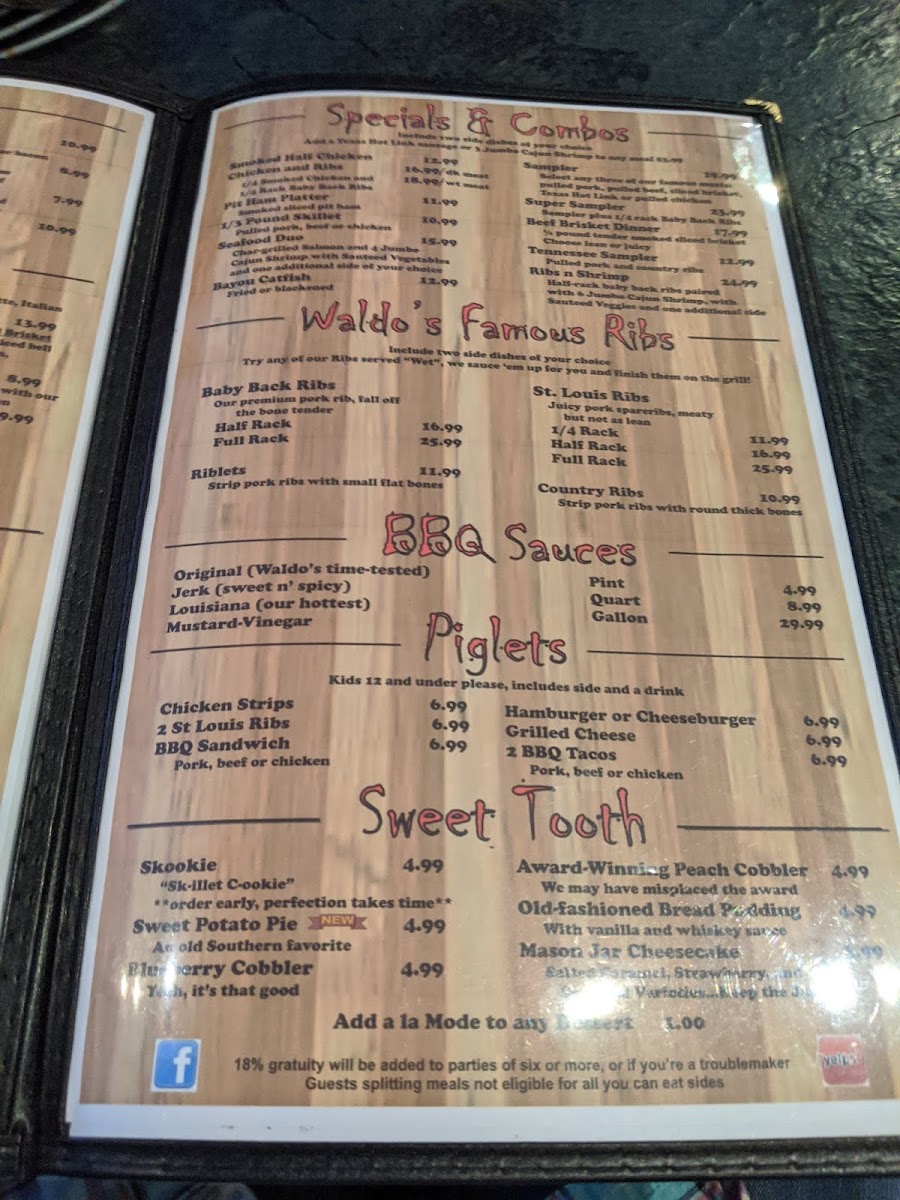 10.99
or bacon
8.99
7.99
10.99
Italian
13.99
Brisket
8.99
with our
9.99
Specials & Combos
Include two side dishes of your choice
Add a Texas Hot Link sausage or 3 Jumbo Cajun Shrimp to any meal $3.99
Smoked Half Chicken 12.99
Chicken and Ribs 16.99/dk meat
1/4 Smoked Chicken and 18.99/wt meat
1/4 Rack Baby Back Ribs
Pit Ham Platter 11.99
Smoked sliced pit ham
1/3 Pound Skillet 10.99
Pulled pork, beef or chicken
Seafood Duo 15.99
Char-grilled Salmon and 4 Jumbo
Cajun Shrimp with Sauteed Vegetables
and one additional side of your choice
Bayou Catfish 12.99
Fried or blackened
Sampler 19.99
Select any three of our famous meats:
pulled pork, pulled beef, sliced brisket,
Texas Hot Link or pulled chicken
Super Sampler 23.99
Sampler plus 1/4 rack Baby Back Ribs
Beef Brisket Dinner 17.99
pound tender smoked sliced brisket
Choose lean or juicy
Tennessee Sampler 12.99
Pulled pork and country ribs
Ribs n Shrimp 24.99
Half-rack baby back ribs paired
with 6 Jumbo Cajun Shrimp, with
Sauteed Veggies and one additional side
Waldo's Famous Ribs
Include two side dishes of your choice
Try any of our Ribs served "Wet", we sauce 'em up for you and finish them on the grill!
Baby Back Ribs
Our premium pork rib, fall off
the bone tender
Half Rack 16.99
Full Rack 25.99
Riblets 11.99
Strip pork ribs with small flat bones
St. Louis Ribs
Juicy pork spareribs, meaty
but not as lean
1/4 Rack 11.99
Half Rack 16.99
Full Rack 25.99
Country Ribs 10.99
Strip pork ribs with round thick bones
BBQ Sauces
Original (Waldo's time-tested)
Jerk (sweet n' spicy)
Louisiana (our hottest)
Mustard-Vinegar
Pint 4.99
Quart 8.99
Gallon 29.99
Piglets
Kids 12 and under please, includes side and a drink
Chicken Strips 6.99
2 St Louis Ribs 6.99
BBQ Sandwich 6.99
Pork, beef or chicken
Hamburger or Cheeseburger 6.99
Grilled Cheese 6.99
2 BBQ Tacos 6.99
Pork, beef or chicken
Sweet Tooth
Skookie 4.99
"Sk-illet C-ookie"
**order early, perfection takes time**
Sweet Potato Pie NEW 4.99
An old Southern favorite
Blueberry Cobbler 4.99
Yeah, it's that good
Award-Winning Peach Cobbler 4.99
We may have misplaced the award
Old-fashioned Bread Pudding 4.99
With vanilla and whiskey sauce
Mason Jar Cheesecake
Salted Caramel, Strawberry, and
Varieties...Keep the
Add a la Mode to any Dessert 1.00
f
18% gratuity will be added to parties of six or more, or if you're a troublemaker
Guests splitting meals not eligible for all you can eat sides
yelp